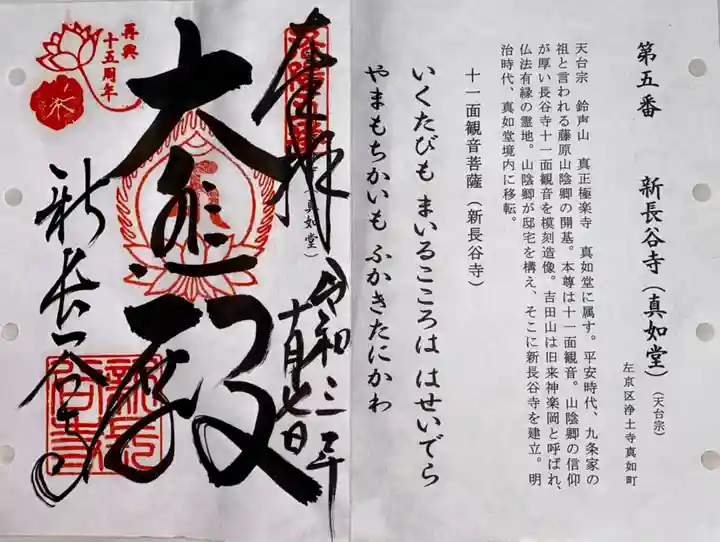 第五番 新長谷寺(真如堂)(天台宗)
左京区浄土寺真如町
天台宗 鈴声山 真正極楽寺 真如堂に属す。平安時代、九条家の
祖と言われる藤原山陰卿の開基。本尊は十一面観音。山陰卿の信仰
が厚い長谷寺十一面観音を模刻造像。吉田山は旧来神楽岡と呼ばれ、
仏法有縁の霊地。山陰卿が邸宅を構え、そこに新長谷寺を建立。明
治時代、真如堂境内に移転。
十一面観音菩薩(新長谷寺)
いくたびも まいるこころは はせいでら
やまもちかいも ふかきたにかわ
奉拝
(真如堂)
令和三年
十一月七日
大悲殿
新長谷寺
再興
十五周年